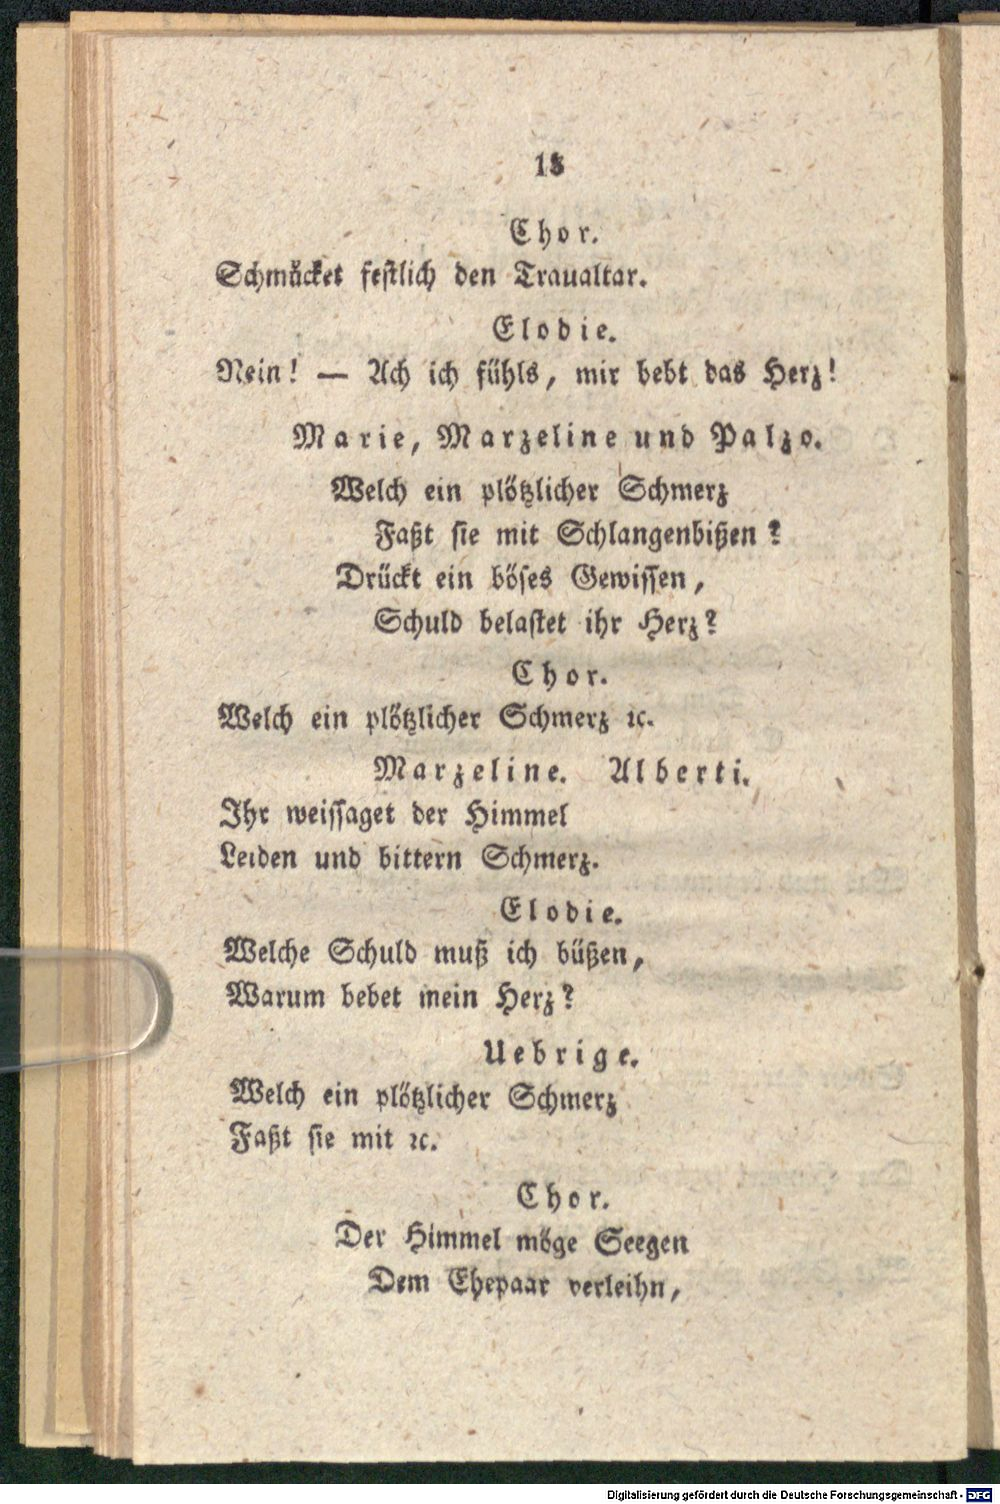 18
Chor.
Schmücket festlich den Traualtar.
Elodie.
Nein! — Ach ich fühls, mir bebt das Herz!
Marie, Marzeline und Palzo.
Welch ein plötzlicher Schmerz
Faßt sie mit Schlangenbißen?
Drückt ein böses Gewissen,
Schuld belastet ihr Herz?
Chor.
Welch ein plötzlicher Schmerz ꝛc.
Marzeline. Alberti.
Ihr weissaget der Himmel
Leiden und bittern Schmerz.
Elodie.
Welche Schuld muß ich büßen,
Warum bebet mein Herz?
Uebrige.
Welch ein plötzlicher Schmerz
Faßt sie mit ꝛc.
Chor.
Der Himmel möge Seegen
Dem Ehepaar verleihn,
Digitalisierung gefördert durch die Deutsche Forschungsgemeinschaft - DFG